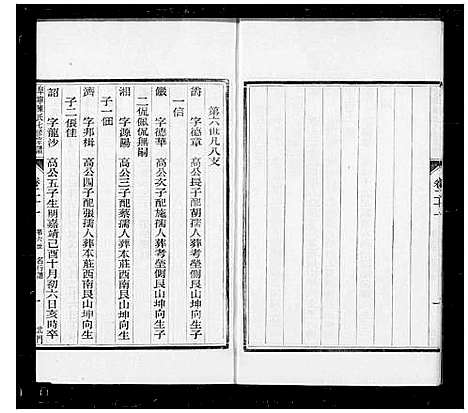 第六世凡八支
爵 字德章 高公長子配胡孺人葬考塋側艮山坤向生子
一信
儼 字德華 高公次子配施孺人葬考塋側艮山坤向生子
二侃侃無嗣
湘 字源陽 高公三子配蔡孺人葬本莊西南艮山坤向生
子一佃
濟 字邦楫 高公四子配張孺人葬本莊西南艮山坤向生
子二倀佳
韶 字龍沙 高公五子生明嘉靖己酉十月初六日亥時卒
卷二十一